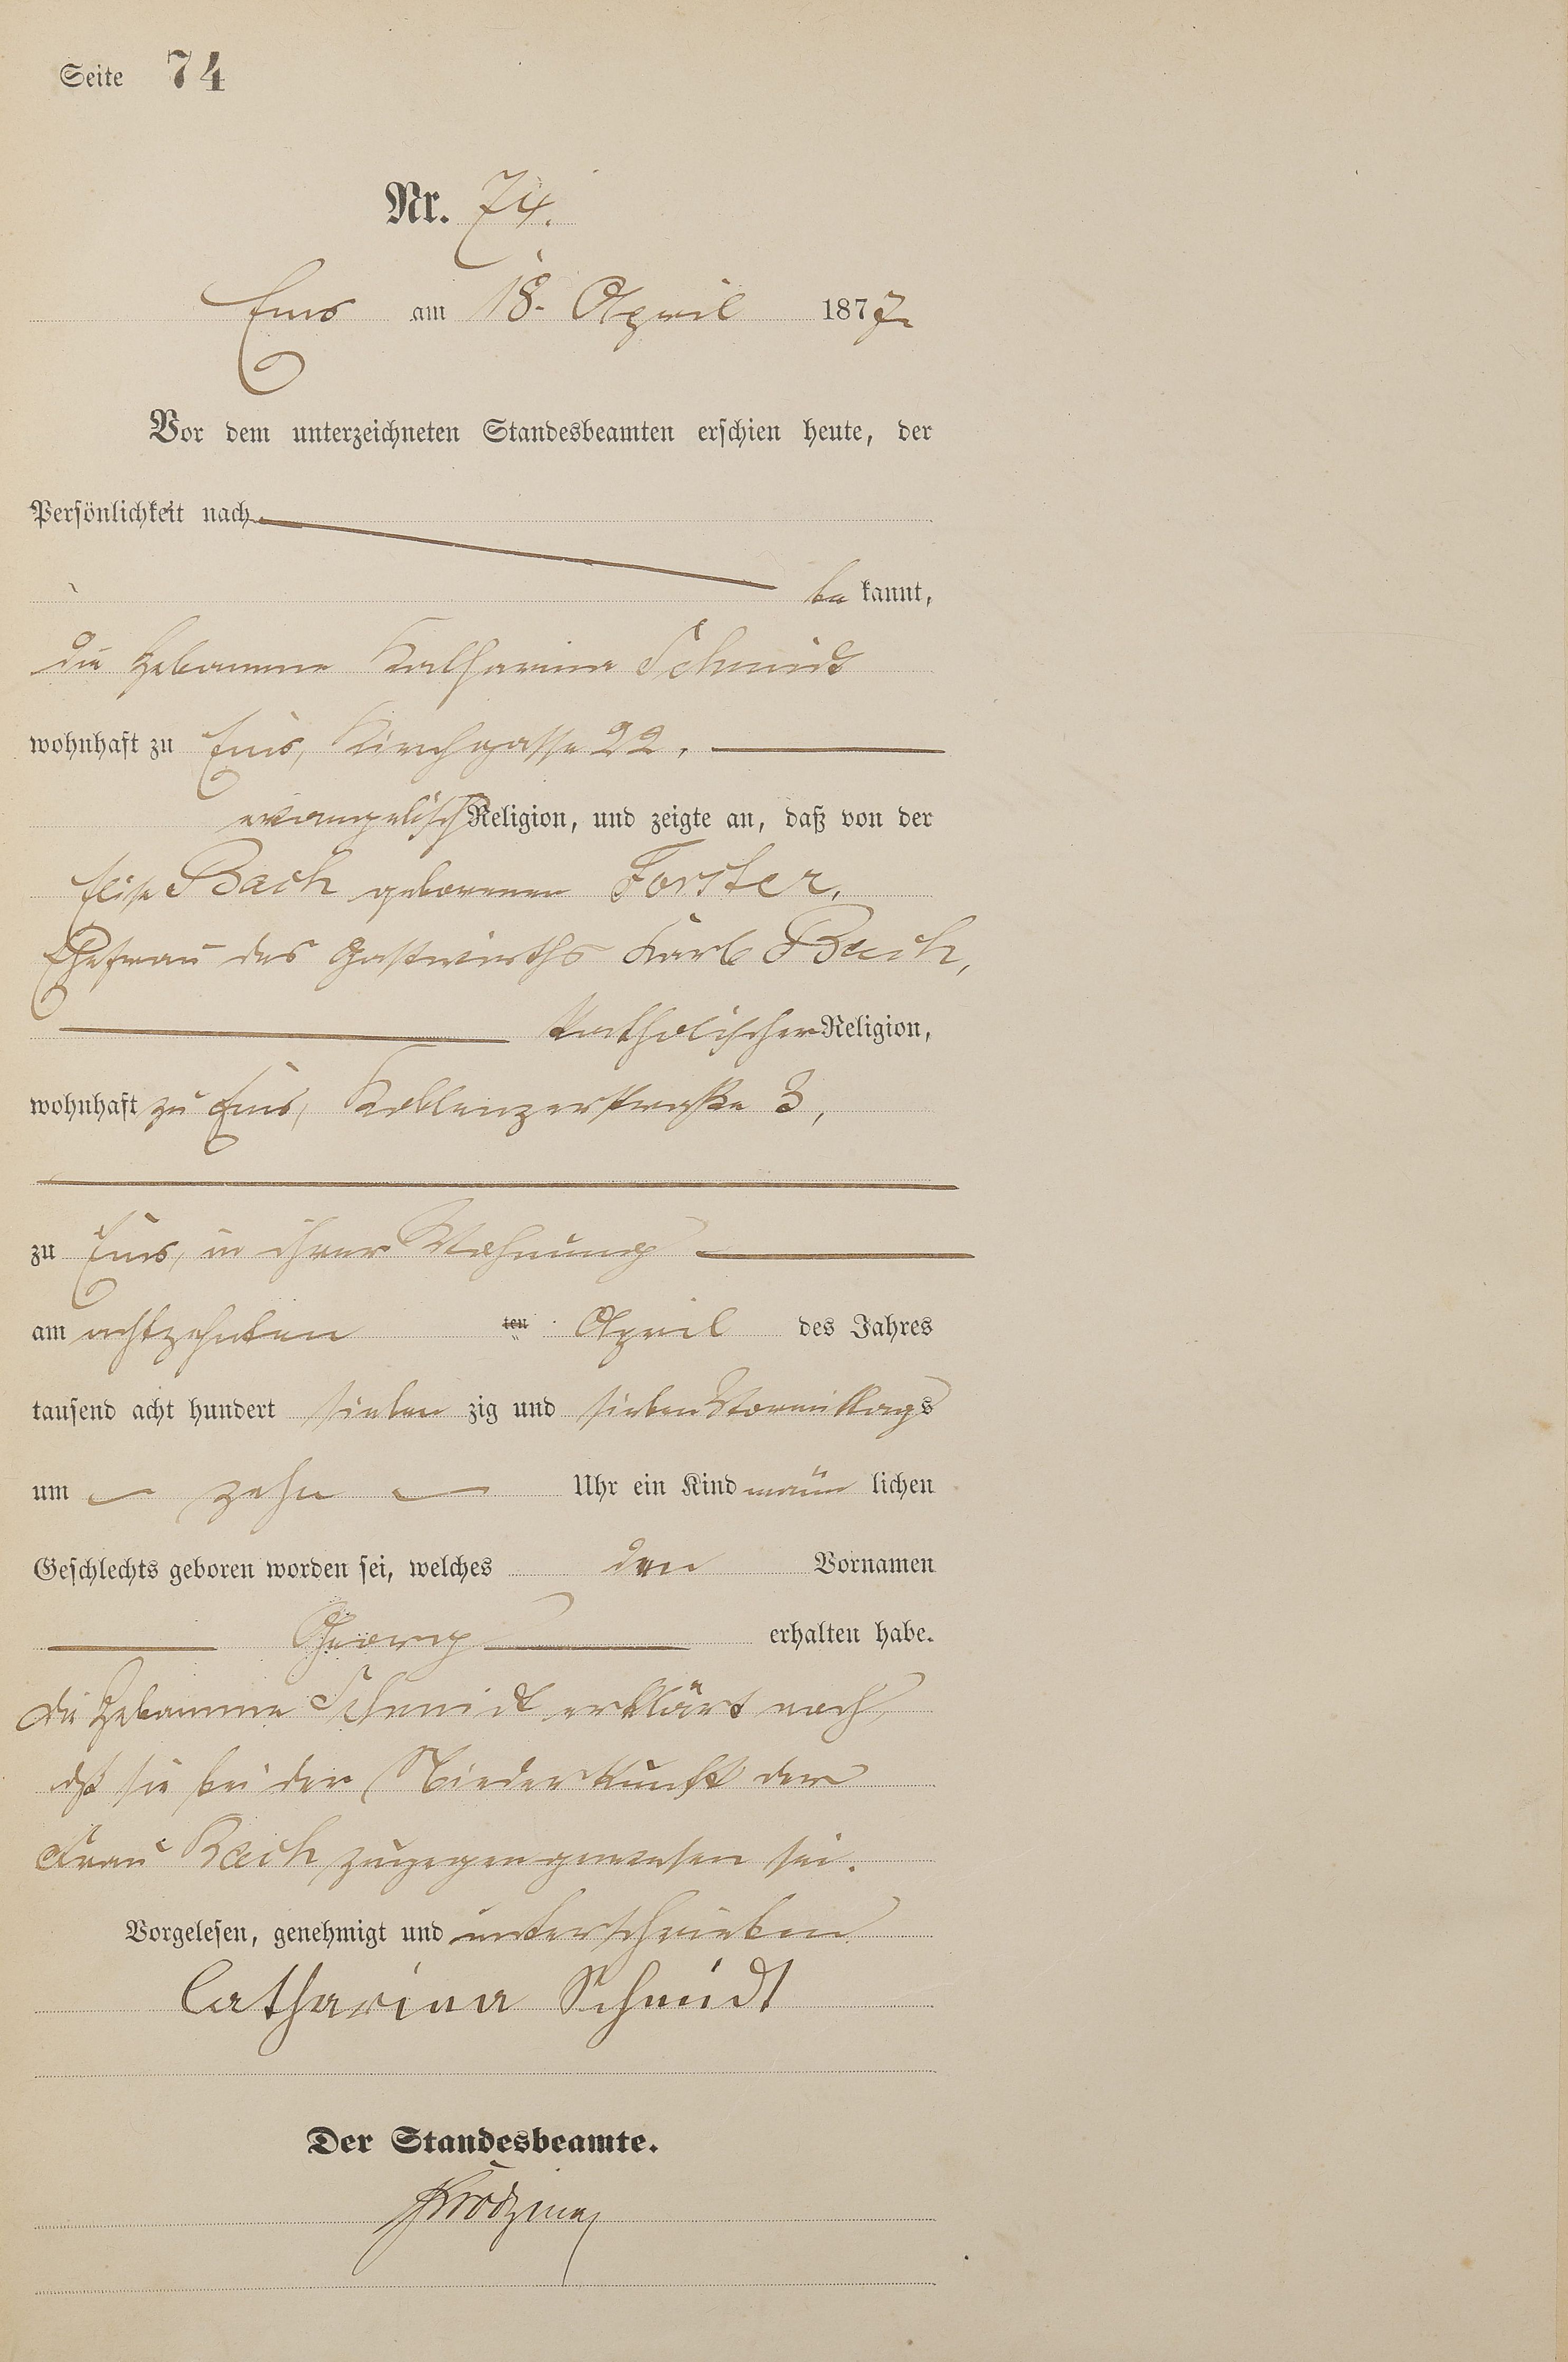 Seite 74
Nr. 74.
Ems am 18. April 1877.
Vor dem unterzeichneten Standesbeamten erschien heute, der
Persönlichkeit nach
be kannt,
die Hebamme Katharina Schmidt
wohnhaft zu Ems, Kirchgasse 22,
evangelisch Religion, und zeigte an, daß von der
Elise Bach geborenen Forster,
Ehefrau des Gastwirths Karl Bach,
katholischer Religion,
wohnhaft zu Ems, Koblenzerstraße 3,
zu Ems, in ihrer Wohnung
am achtzehnten ten April des Jahres
tausend acht hundert sieben zig und sieben Vormittags
um zehn Uhr ein Kind männ lichen
Geschlechts geboren worden sei, welches den Vornamen
Georg erhalten habe.
Die Hebamme Schmidt erklärt noch,
daß sie bei der Niederkunft der
Frau Bach zugegen gewesen sei.
Vorgelesen, genehmigt und unterschrieben
Catharina Schmidt
Der Standesbeamte.